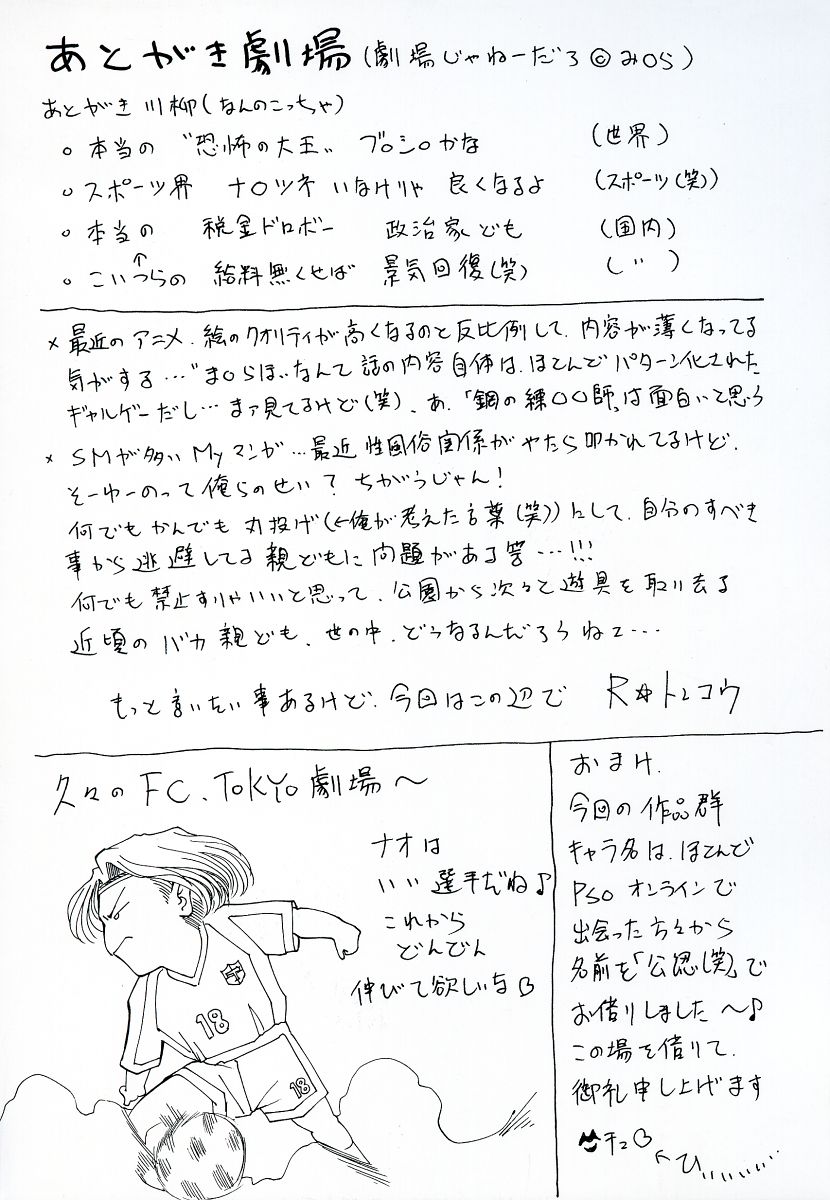 あとがき劇場(劇場じゃねーだろ©みOら)
あとがき 川柳(なんのこっちゃ)
○ 本当の "恐怖の大王" ブOシOかな (世界)
○ スポーツ界 ナOツネ いなけりゃ 良くなるよ (スポーツ(笑))
○ 本当の 税金ドロボー 政治家ども (国内)
↑
○ こいつらの 給料無くせば 景気回復(笑) (〃)
× 最近のアニメ、絵のクオリティが高くなるのと反比例して、内容が薄くなってる
気がする…"まOらほ"なんて話の内容自体は、ほとんどパターン化された
ギャルゲーだし…まァ見てるけど(笑)、あ、「鋼の練〇〇師」は面白いと思う
× SMが多い Myマンガ…最近 性風俗関係が やたら叩かれてるけど、
そーゆーのって俺らのせい? ちがうじゃん!
何でもかんでも 丸投げ(←俺が考えた言葉(笑))にして、自分のすべき
事から逃避してる親どもに問題がある筈…!!!
何でも禁止すりゃいいと思って、公園から次々と遊具を取り去る
近頃のバカ親ども、世の中、どうなるんだろうねェ…
もっと言いたい事あるけど、今回はこの辺で R☆トンコウ
久々のFC、TOKYO劇場〜
ナオは
いい選手だね♪
これから
どんどん
伸びて欲しいな
18
18
おまけ、
今回の作品群
キャラ名は、ほとんど
PSOオンラインで
出会った方々から
名前を「公認(笑)」で
お借りしました〜♪
この場を借りて、
御礼申し上げます